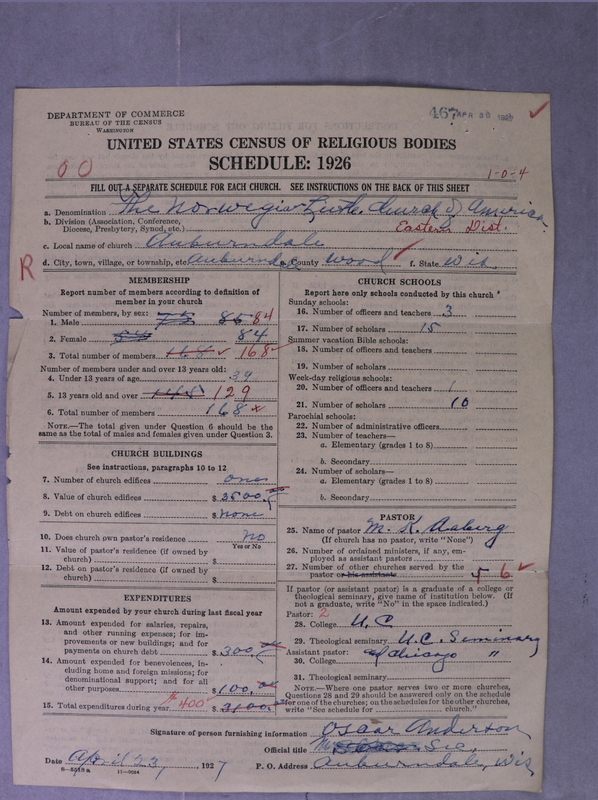 DEPARTMENT OF COMMERCE
BUREAU OF THE CENSUS
WASHINGTON
467 APR 30
UNITED STATES CENSUS OF RELIGIOUS BODIES
SCHEDULE: 1926
00
1-0-4
FILL OUT A SEPARATE SCHEDULE FOR EACH CHURCH. SEE INSTRUCTIONS ON THE BACK OF THIS SHEET
a. Denomination The Norwegian Luth. Church of America
b. Division (Association, Conference, Diocese, Presbytery, Synod, etc.) Eastern Dist.
c. Local name of church Auburndale
d. City, town, village, or township, etc. Auburndale e. County Wood f. State Wis.
R
MEMBERSHIP
Report number of members according to definition of
member in your church
Number of members, by sex:
1. Male 84
2. Female 84
3. Total number of members 168
Number of members under and over 13 years old:
4. Under 13 years of age 39
5. 13 years old and over 129
6. Total number of members 168
NOTE.—The total given under Question 6 should be
the same as the total of males and females given under Question 3.
CHURCH BUILDINGS
See instructions, paragraphs 10 to 12
7. Number of church edifices one
8. Value of church edifices $ 3500
9. Debt on church edifices $ none
10. Does church own pastor's residence No
Yes or No
11. Value of pastor's residence (if owned by
church) $
12. Debt on pastor's residence (if owned by
church) $
EXPENDITURES
Amount expended by your church during last fiscal year
13. Amount expended for salaries, repairs,
and other running expenses; for im-
provements or new buildings; and for
payments on church debt $ 300
14. Amount expended for benevolences, in-
cluding home and foreign missions; for
denominational support; and for all
other purposes $ 100
15. Total expenditures during year $ 400
CHURCH SCHOOLS
Report here only schools conducted by this church
Sunday schools:
16. Number of officers and teachers 3
17. Number of scholars 15
Summer vacation Bible schools:
18. Number of officers and teachers
19. Number of scholars
Week-day religious schools:
20. Number of officers and teachers 1
21. Number of scholars 10
Parochial schools:
22. Number of administrative officers
23. Number of teachers—
a. Elementary (grades 1 to 8)
b. Secondary
24. Number of scholars—
a. Elementary (grades 1 to 8)
b. Secondary
PASTOR
25. Name of pastor M. K. Aaberg
(If church has no pastor, write "None")
26. Number of ordained ministers, if any, em-
ployed as assistant pastors
27. Number of other churches served by the
pastor or his assistants 6
If pastor (or assistant pastor) is a graduate of a college or
theological seminary, give name of institution below. (If
not a graduate, write "No" in the space indicated.)
Pastor: 2
28. College U. C
29. Theological seminary U. C. Seminary
Assistant pastor: of Chicago "
30. College
31. Theological seminary
NOTE.—Where one pastor serves two or more churches,
Questions 28 and 29 should be answered only on the schedule
for one of the churches; on the schedules for the other churches,
write "See schedule for ____ church."
Signature of person furnishing information Oscar Anderson
Official title Sec.
Date April 23, 1927 P. O. Address Auburndale, Wis
8-5518a 11-9284